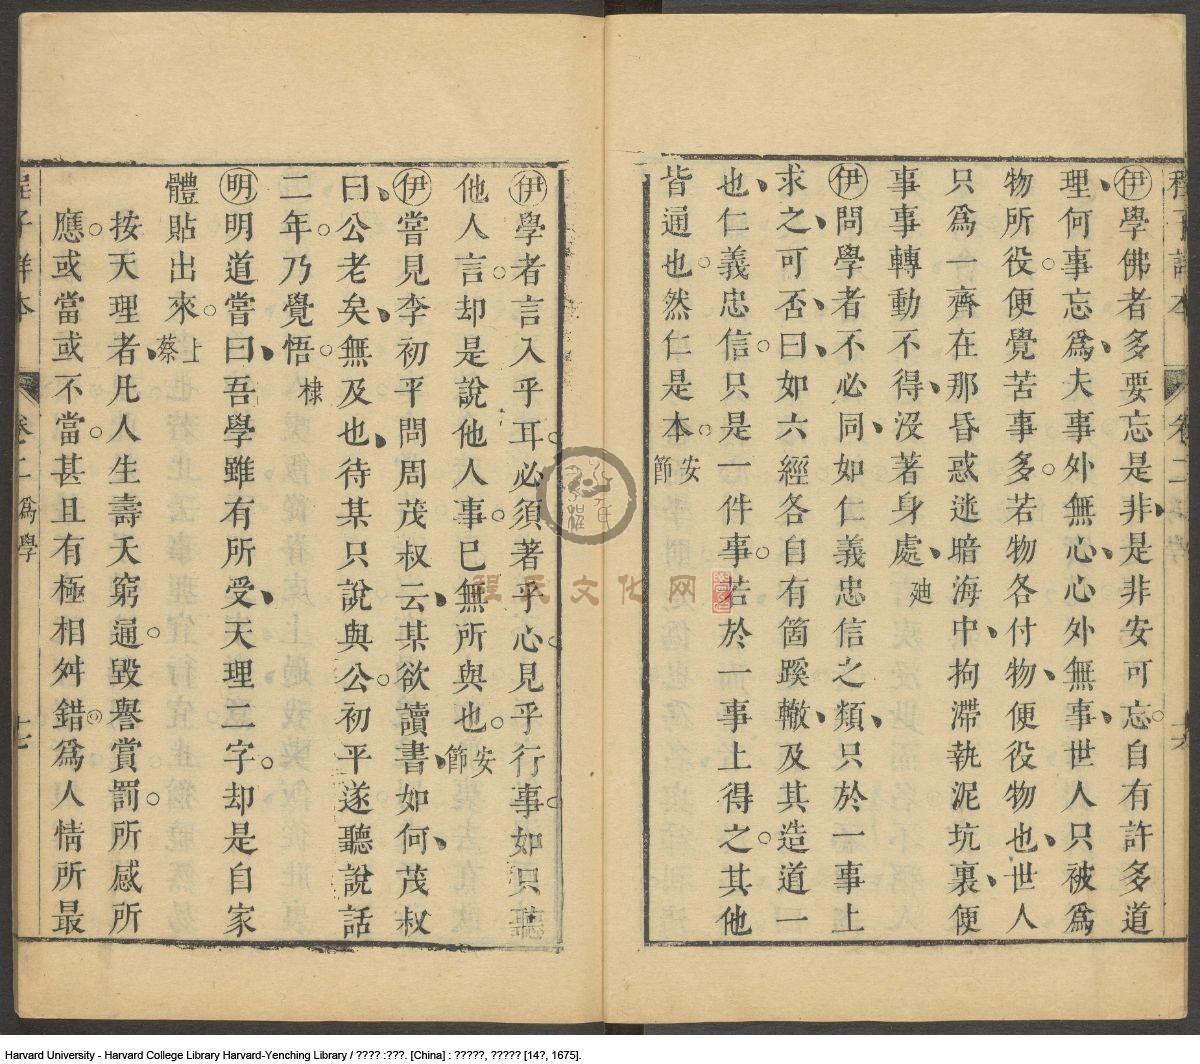 伊學佛者多要忘是非是非安可忘自有許多道
理何事忘爲夫事外無心心外無事世人只被爲
物所役便覺苦事多若物各付物便役物也世人
只爲一齊在那昏惑迷暗海中拘滯執泥坑裏便
事事轉動不得沒著身處廸
伊問學者不必同如仁義忠信之類只於一事上
求之可否曰如六經各自有箇蹊轍及其造道一
也仁義忠信只是一件事若於一事上得之其他
皆通也然仁是本安節
伊學者言入乎耳必須著乎心見乎行事如只聽
他人言却是說他人事已無所與也安節
伊嘗見李初平問周茂叔云某欲讀書如何茂叔
曰公老矣無及也待某只說與公初平遂聽說話
二年乃覺悟棣
明明道嘗曰吾學雖有所受天理二字却是自家
體貼出來上蔡
按天理者凡人生壽夭窮通毀譽賞罰所感所
應或當或不當甚且有極相舛錯爲人情所最
卷之二爲學
十七
程氏文化网
Harvard University - Harvard College Library Harvard-Yenching Library / ???? :???. [China] : ?????, ????? [14?, 1675].